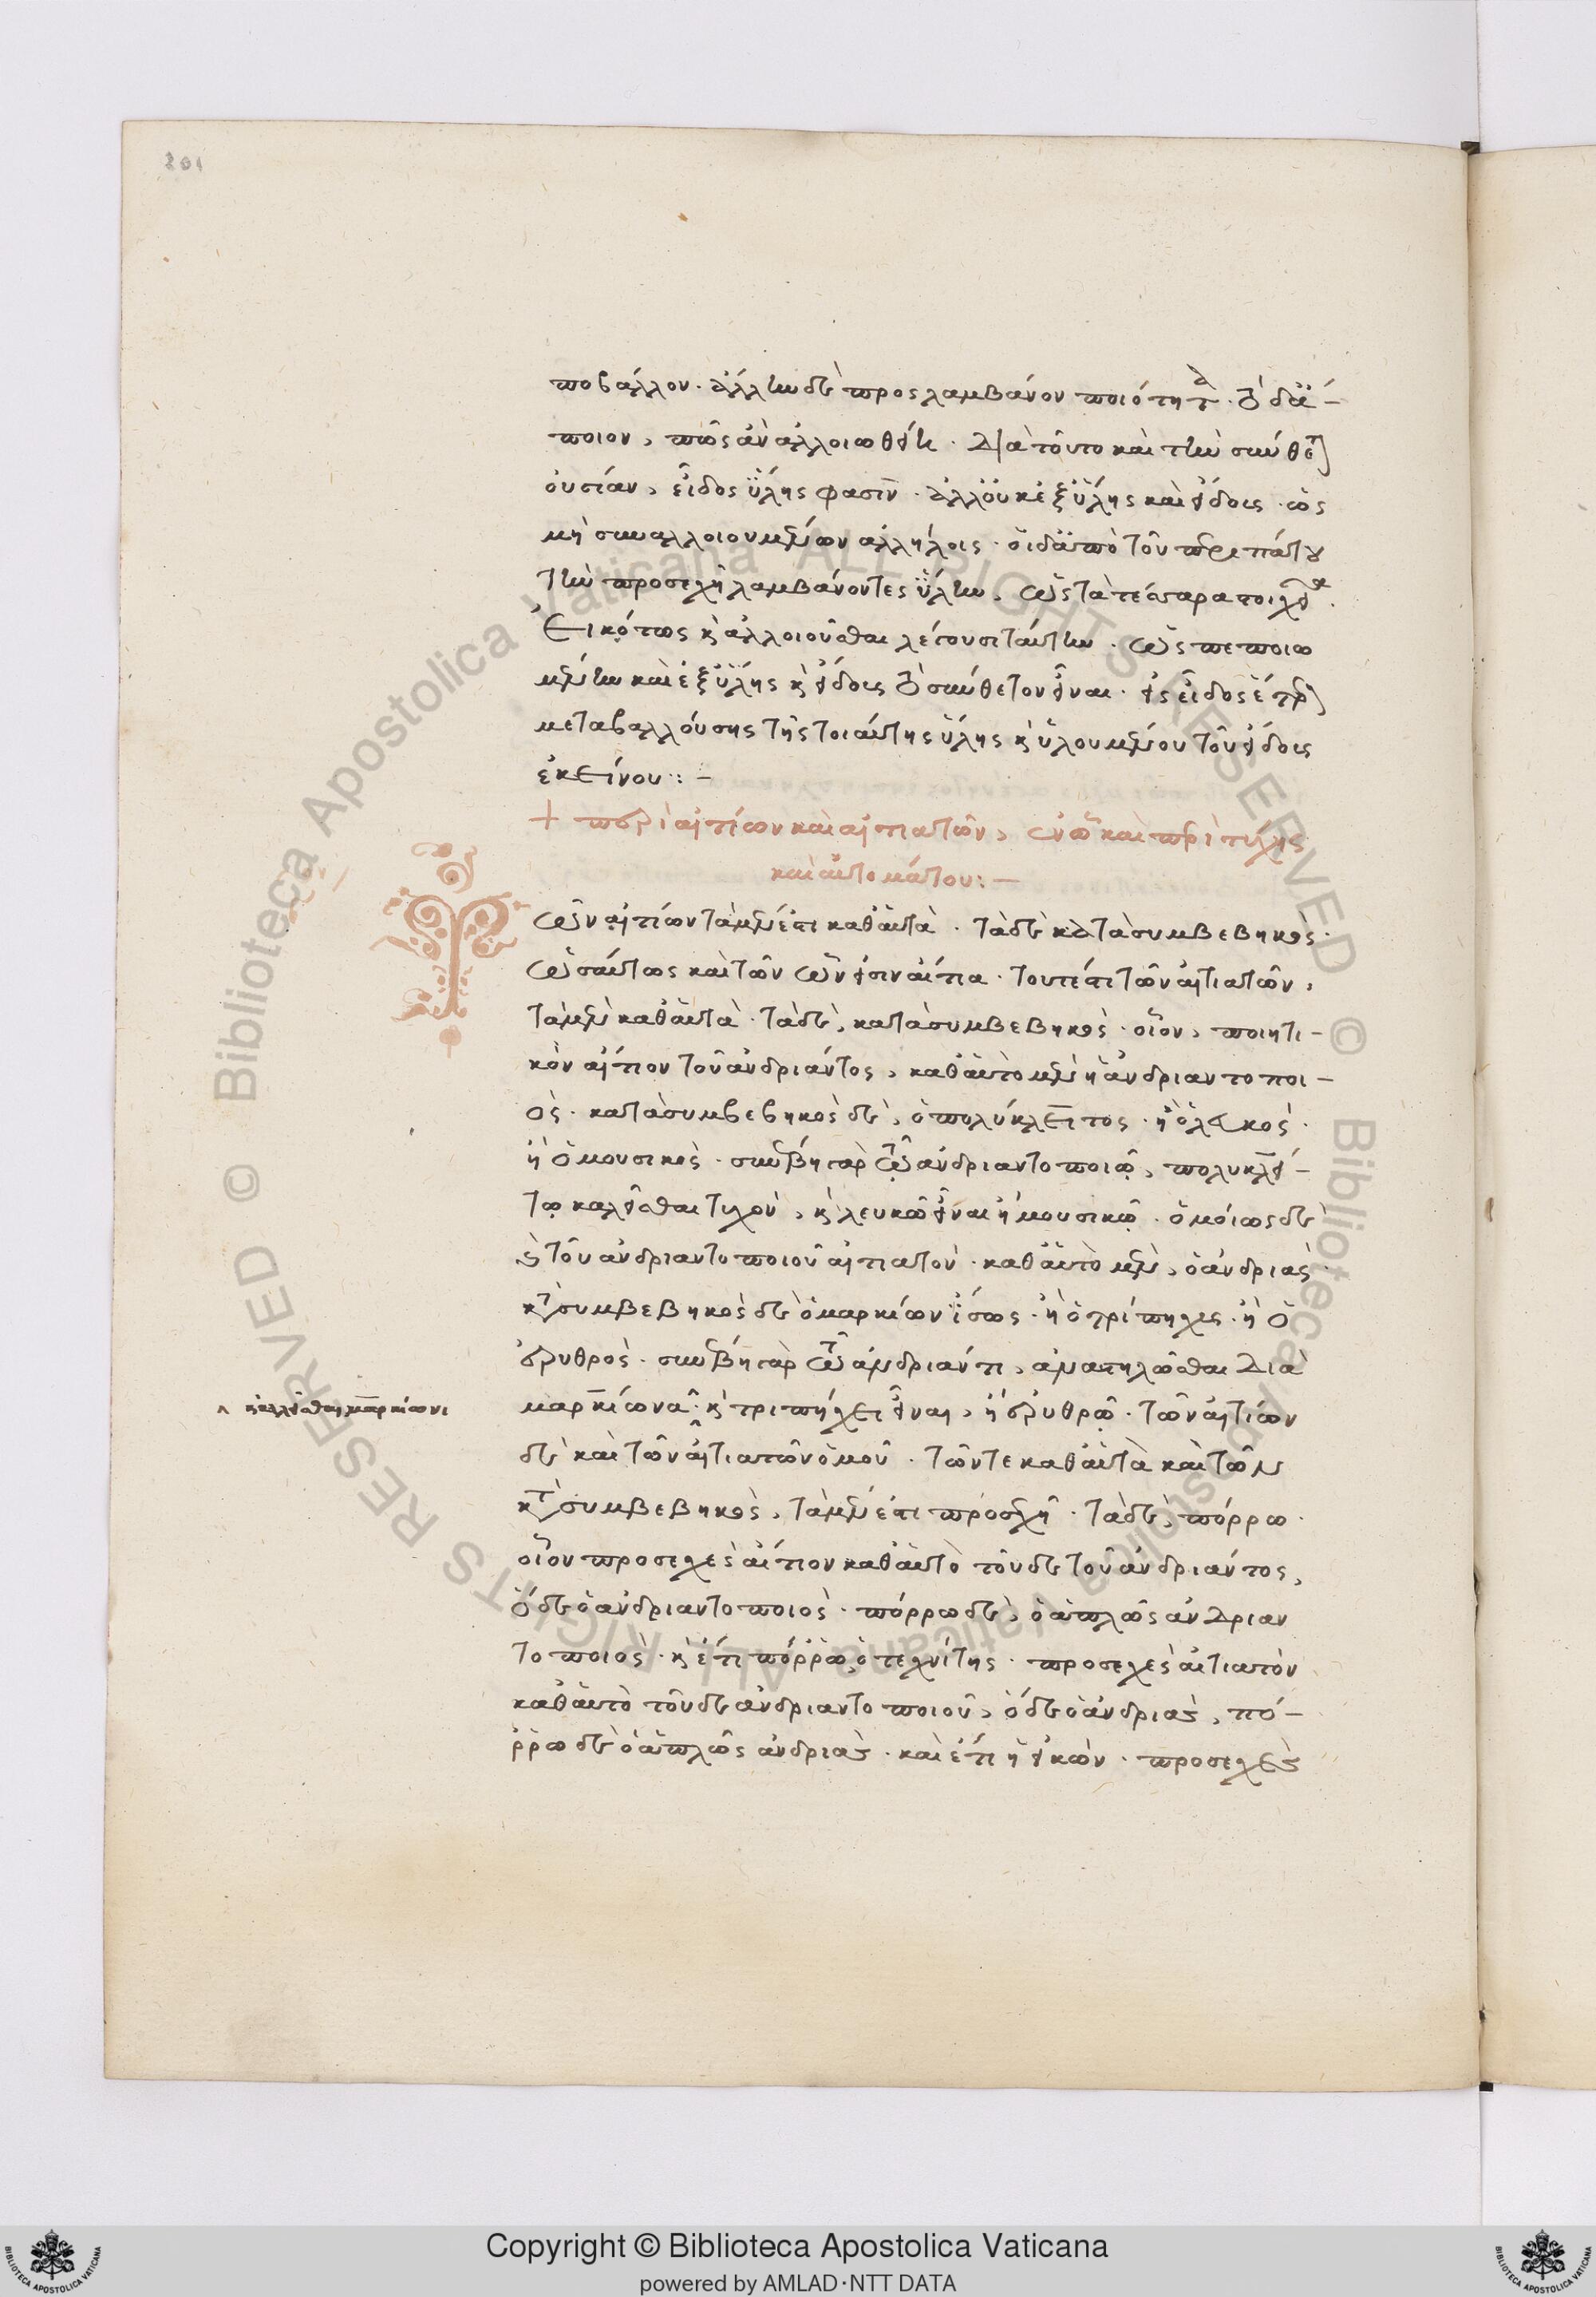 201
ποβάλλον. ἄλλην δὲ προσλαμβάνον ποιότητα. τὸ δ' ἄ-
ποιον, πῶς ἂν ἀλλοιωθείη. διὰ τοῦτο καὶ τὴν σύνθετον
οὐσίαν, εἶδος ὕλης φασὶν. ἀλλ' οὐκ ἐξ ὕλης καὶ εἴδους. ὡς
μὴ συναλλοιουμένων ἀλλήλοις. οἱ δ' ἀπὸ τοῦ περιπάτου
τὴν προσεχῆ λαμβάνοντες ὕλην, ὡς τὰ τέσσαρα στοιχεῖα.
εἰκότως καὶ ἀλλοιοῦσθαι λέγουσι ταύτην. ὡς πεποιω
μένην καὶ ἐξ ὕλης καὶ εἴδους τὸ σύνθετον εἶναι. εἰς εἶδος ἕτερον
μεταβαλλούσης τῆς τοιαύτης ὕλης καὶ ὑλουμένου τοῦ εἴδους
ἐκείνου:-
+ περὶ αἰτίων καὶ αἰτιατῶν, ἐν ᾧ καὶ περὶ τύχης
καὶ αὐτομάτου:-
Τῶν αἰτίων τὰ μέν ἐστι καθ' αὑτὰ. τὰ δὲ κατὰ συμβεβηκὸς.
ὡσαύτως καὶ τῶν ὧν εἰσιν αἴτια. τουτέστι τῶν αἰτιατῶν,
τὰ μὲν καθ' αὑτὰ. τὰ δὲ, κατὰ συμβεβηκὸς. οἷον, ποιητι-
κὸν αἴτιον τοῦ ἀνδριάντος, καθ' αὑτὸ μὲν ἢ ἀνδριαντοποι-
ὸς. κατὰ συμβεβηκὸς δὲ, ὁ πολύκλειτος. ἢ ὁ λευκὸς.
ἢ ὁ μουσικὸς. συνέβη γὰρ τῷ ἀνδριαντοποιῷ, πολυκλεί-
τῳ καλεῖσθαι τυχὸν, καὶ λευκῷ εἶναι ἢ μουσικῷ. ὁμοίως δὲ
καὶ τοῦ ἀνδριαντοποιοῦ αἰτιατὸν. καθ' αὑτὸ μὲν, ὁ ἀνδριὰς.
κατὰ συμβεβηκὸς δὲ ὁ μαρκίων ἴσως. ἢ ὁ τρίπηχυς. ἢ ὁ
ἐρυθρὸς. συνέβη γὰρ τῷ ἀνδριάντι, ἀναπηλῶσθαι διὰ
μαρκίωνα. καὶ τριπήχει εἶναι, ἢ ἐρυθρῷ. τῶν αἰτίων
^ καλεῖσθαι μαρκίωνι
δὲ καὶ τῶν αἰτιατῶν ὁμοῦ. τῶν τε καθ' αὑτὰ καὶ τῶν
κατὰ συμβεβηκὸς, τὰ μέν ἐστι προσεχῆ. τὰ δὲ, πόρρω.
οἷον προσεχὲς αἴτιον καθ' αὑτὸ τοῦδε τοῦ ἀνδριάντος,
ὅδε ὁ ἀνδριαντοποιὸς. πόρρω δὲ, ὁ ἁπλῶς ἀνδριαν
τοποιὸς. καὶ ἔτι πόρρω, ὁ τεχνίτης. προσεχὲς αἰτιατὸν
καθ' αὑτὸ τοῦδε ἀνδριαντοποιοῦ, ὅδε ὁ ἀνδριὰς, πό-
ρρω δὲ ὁ ἁπλῶς ἀνδριὰς. καὶ ἔτι ἡ εἰκὼν. προσεχὲς
Copyright © Biblioteca Apostolica Vaticana
powered by AMLAD·NTT DATA